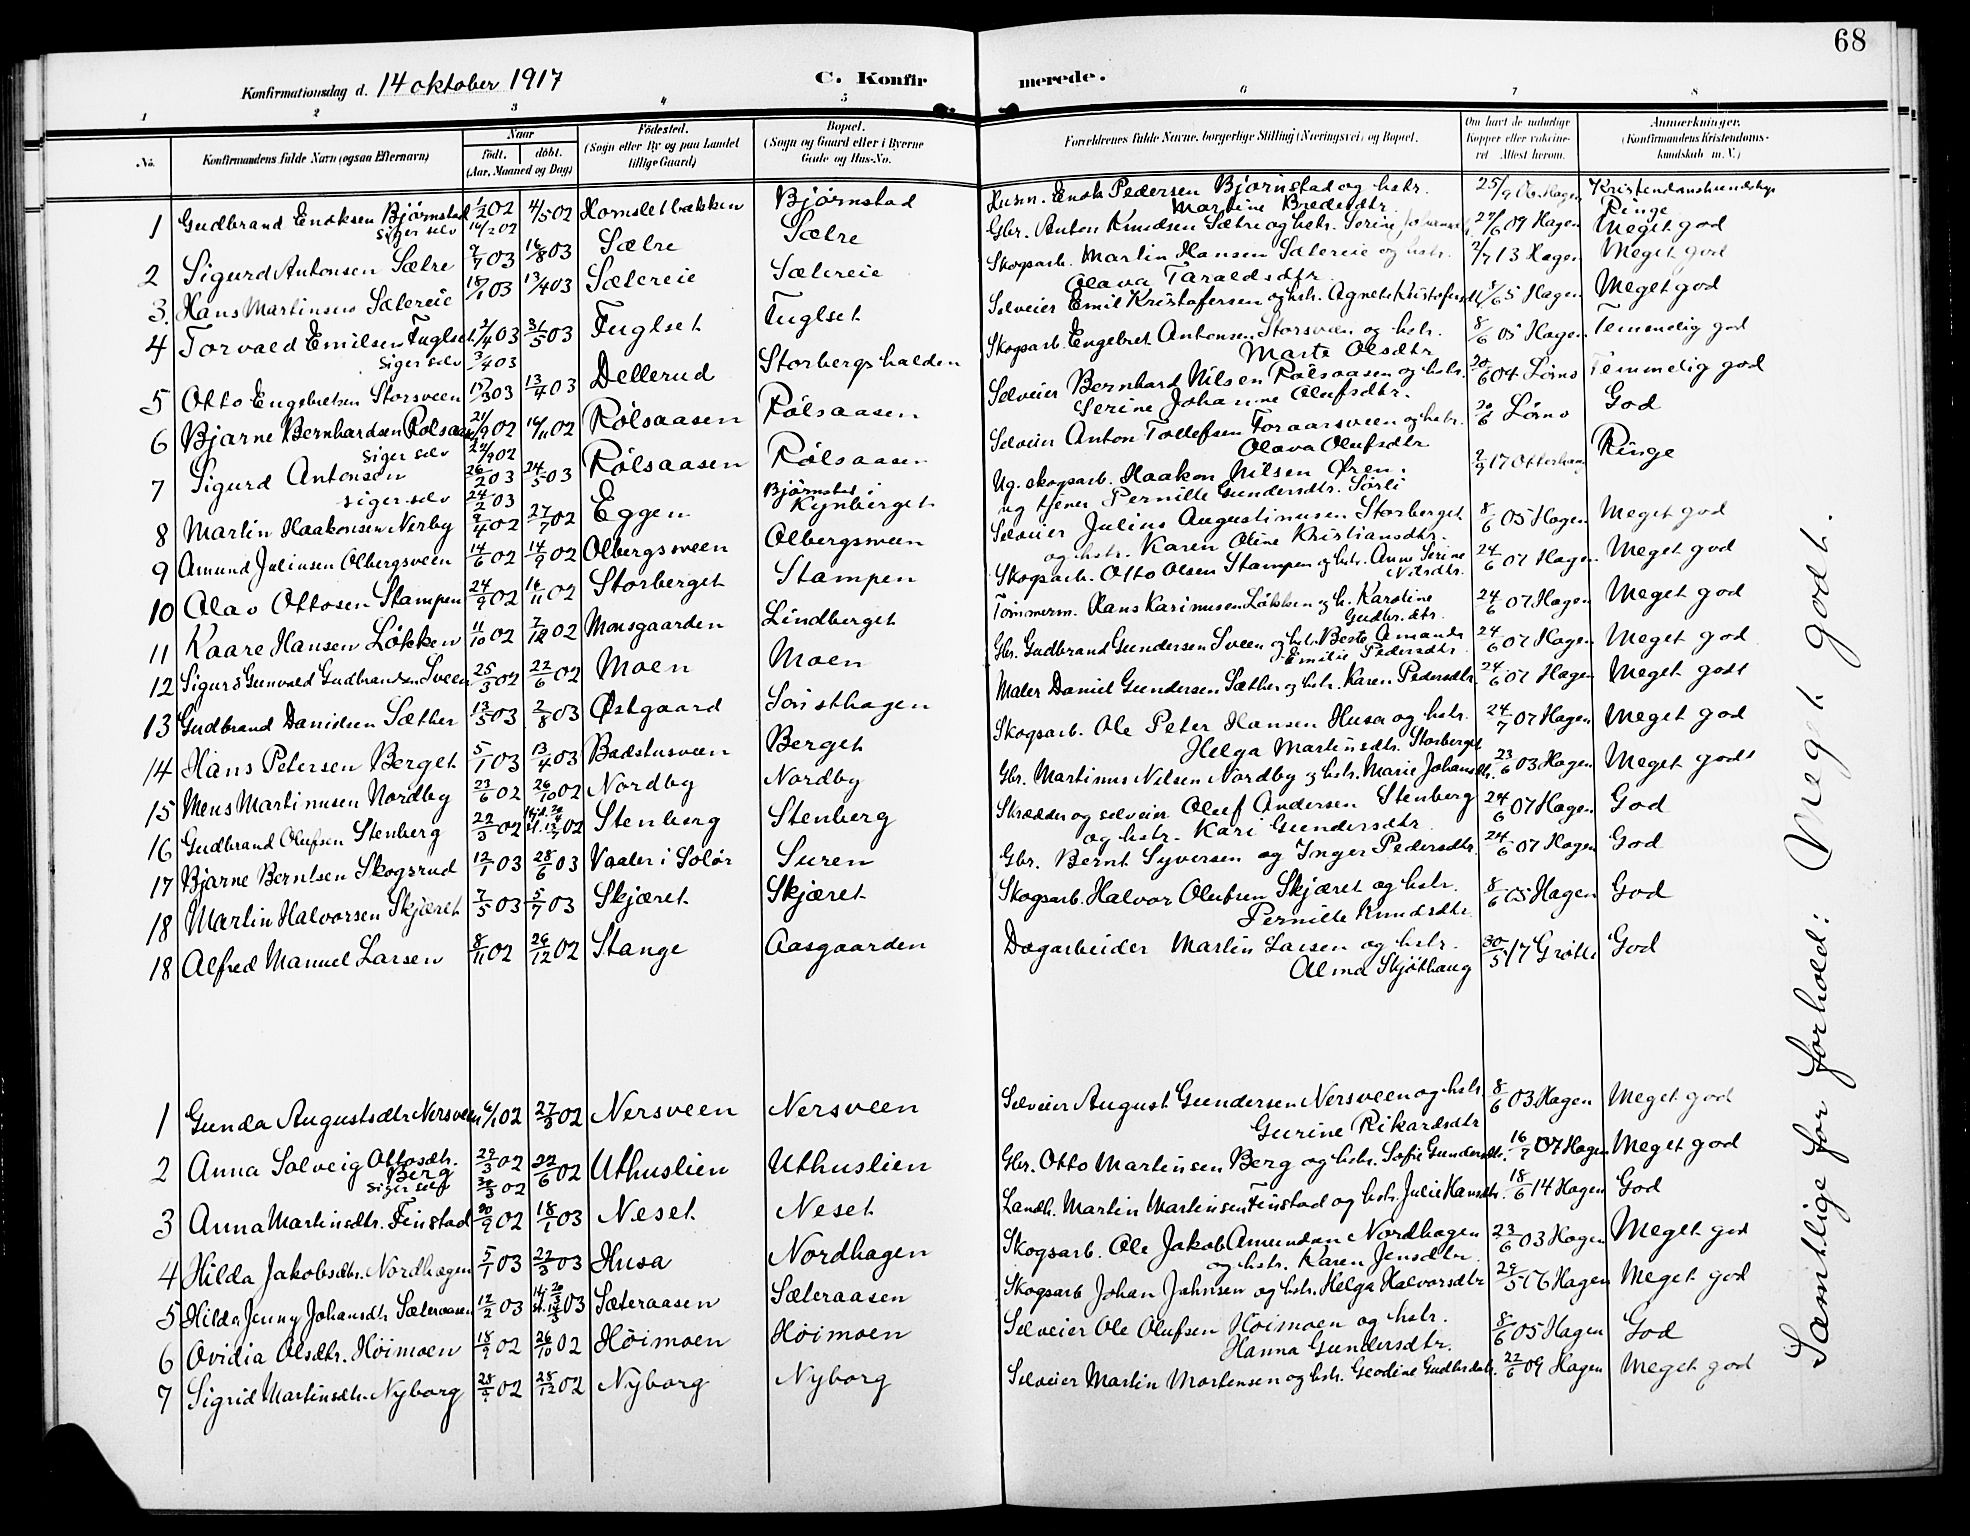 68
Konfirmationsdag d. 14 oktober 1917 C. Konfirmerede.
1 2 3 4 5 6 7 8
No. Konfirmandens fulde Navn (ogsaa Efternavn) Naar født. døbt. (Aar, Maaned og Dag) Fødested. (Sogn eller By og paa Landet tillige Gaard) Bopæl. (Sogn og Gaard eller i Byerne Gade og Hus-No. Forældrenes fulde Navne, borgerlige Stilling (Næringsvei) og Bopæl. Om havt de naturlige Kopper eller vaccineret Attest herom. Anmærkninger. (Konfirmandens Kristendomskundskab m. V.)
1 Gudbrand Enoksen Bjørnstad 1/2 02 4/5 02 Hornsletbakken Bjørnstad Husm. Enok Pedersen Bjørnstad og hstr. 25/9 06 Hagen Kristendomskundskap
siger selv 16/2 02 Martine Bredesdtr. Ringe
2 Sigurd Antonsen Sætre 9/7 03 16/8 03 Sætre Sætre Gbr. Anton Knudsen Sætre og hstr. Serine 24/6 09 Hagen Meget god
3. Hans Martinsen Sætereie 18/1 03 13/4 03 Sætereie Sætereie Skogsarb. Martin Hansen Sætereie og hstr. 2/7 13 Hagen Meget god
Olava Taraldsdtr.
4 Torvald Emilsen Fuglset 2/4 03 31/5 03 Fuglset Fuglset Selveier Emil Kristofersen og hstr. Agnete 8/6 5 Hagen Meget god
siger selv 3/4 03
5 Otto Engebretsen Storsveen 15/3 03 13/4 03 Dellerud Storbergshalden Skogsarb. Engebret Antonsen Storsveen og hstr. 8/6 05 Hagen Temmelig god
Marte Olsdtr
6 Bjarne Bernhardsen Rølsaasen 21/9 02 16/11 02 Rølsaasen Rølsaasen Selveier Bernhard Nilsen Rølsaasen og hstr. 20/6 04 Lørno Temmelig god
siger selv 22/9 02 Serine Johanne Olufsdtr.
7 Sigurd Antonsen 26/2 03 24/5 03 Rølsaasen Rølsaasen Selveier Anton Tollefsen Foraarsveen og hstr. 20/6 Lørno God
siger selv 24/2 03 Olava Olufsdtr
8 Martin Haakonsen Nerby 9/4 02 27/7 02 Eggen Bjørnstad i Kynberget Ug. skogsarb. Haakon Nilsen Øren. 2/9 17 Ringe
ug tjener Pernille Gundersdtr. Sørli
9 Amund Juliusen Olbergsveen 14/6 02 14/9 02 Olbergsveen Olbergsveen Selveier Julius Augustinusen Storberget 8/6 05 Hagen Meget god
og hstr. Karen Oline Kristiansdtr.
10 Olav Ottosen Stampen 24/9 02 16/11 02 Storberget Stampen Skogsarb. Otto Olsen Stampen og hstr. Anne Serine 24/6 07 Hagen Meget god
Nilsdtr.
11 Kaare Hansen Løkken 11/10 02 7/12 02 Monsgaarden Lindberget Tømmerm. Hans Karinusen Løkken og h. Karoline 24/6 07 Hagen Meget god
Gudbr.dtr.
12 Sigurd Gunvald Gudbrandsen Sveen 25/3 02 22/6 02 Moen Moen Gbr. Gudbrand Gundersen Sveen og hstr. Beste Amanda 24/6 07 Hagen Meget god
Emilie Pedersdtr
13 Gudbrand Danielsen Sæther 13/5 03 2/8 03 Østgaard Soristhagen Maler Daniel Gundersen Sæther og hstr. Karen Pedersdtr. 24/6 07 Hagen Meget godt
14 Hans Petersen Berget 5/1 03 13/4 03 Badstusveen Berget Skogsarb. Ole Peter Hansen Husa og hstr. 24/7 07 Hagen Meget god
Helga Martinsdtr. Storberget
15 Mens Martinusen Nordby 23/6 02 26/10 02 Nordby Nordby Gbr. Martinus Nilsen Nordby og hstr. Marie Johansdtr. 23/6 03 Hagen Meget godt
16 Gudbrand Olufsen Stenberg 22/3 02 02 Stenberg Stenberg Skrædder og selveier Oluf Andersen Stenberg 24/6 07 Hagen God
og hstr. Kari Gundersdtr
17 Bjarne Berntsen Skogsrud 12/1 03 28/6 03 Vaaler i Solør Suren Gbr. Bernt Syversen og Inger Pedersdtr. 24/6 07 Hagen God
18 Martin Halvorsen Skjæret 7/5 03 5/7 03 Skjæret Skjæret Skogsarb. Halvor Olufsen Skjæret og hstr. 8/6 05 Hagen God
Pernille Knudsdtr
18 Alfred Manuel Larsen 8/11 02 26/12 02 Stange Aasgaarden Dagarbeider Martin Larsen og hstr. 30/5 17 Grøtli God
Alma Skjøthaug
1 Gunda Augustsdtr Nersveen 6/1 02 27/3 02 Nersveen Nersveen Selveier August Gundersen Nersveen og hstr 8/6 03 Hagen Meget god
Gurine Rikardsdtr
2 Anna Solveig Ottosdtr. Berg 29/3 02 22/6 02 Uthuslien Uthuslien Gbr. Otto Martinsen Berg og hstr. Sofie Gundersdtr. 16/7 07 Hagen Meget god
siger selv 30/3 02
3 Anna Martinsdtr. Finstad 20/9 02 18/1 03 Neset Neset Landh. Martin Martinsen Finstad og hstr. Julie Hansdtr. 18/6 14 Hagen God
4 Hilda Jakobsdtr. Nordhagen 5/1 03 22/3 03 Husa Nordhagen Skogsarb. Ole Jakob Amundsen Nordhagen 23/6 03 Hagen Meget god
og hstr. Karen Jensdtr
5 Hilda Jenny Johansdtr Sæteraasen 12/2 03 03 Sæteraasen Sæteraasen Skogsarb Johan Johnsen og hstr. Helga Halvorsdtr 29/5 16 Hagen Meget god
6 Ovidia Olsdtr. Høimoen 18/9 02 26/10 02 Høimoen Høimoen Selveier Ole Olufsen Høimoen og hstr. 8/6 05 Hagen God
Hanna Gundersdtr.
7 Sigrid Martinsdtr Nyborg 02 28/12 02 Nyborg Nyborg Selveier Martin Mortensen og hstr. Geodine Gudbrdtr. 22/6 09 Hagen Meget god
Samtlige for forhold: Meget godt.